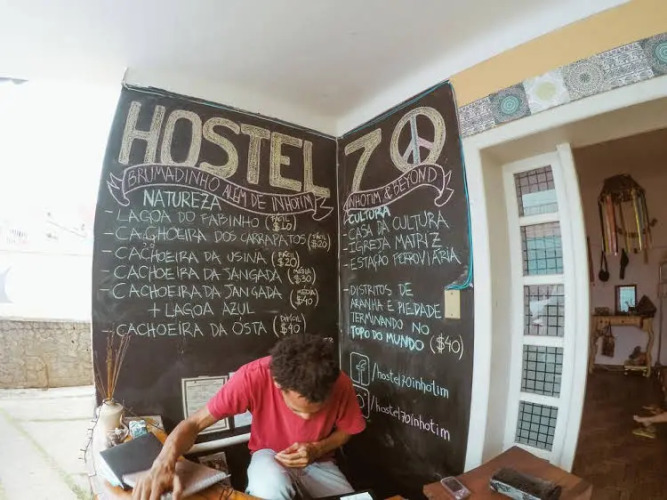 HOSTEL
BRUMADINHO ALÉM DE INHOTIM
NATUREZA
- LAGOA DO FABINHO (FÁCIL $10)
- CACHOEIRA DOS CARRAPATOS (FÁCIL $20)
- CACHOEIRA DA USINA (FÁCIL $20)
- CACHOEIRA DA SANGADA (MÉDIA $30)
- CACHOEIRA DA JANGADA (MÉDIA $40)
+ LAGOA AZUL
- CACHOEIRA DA ÓSTA (DIFÍCIL $40)
70
INHOTIM & BEYOND
CULTURA
- CASA DA CULTURA
- IGREJA MATRIZ
- ESTAÇÃO FERROVIÁRIA
- DISTRITOS DE
ARANHA E PIEDADE
TERMINANDO NO
TOPO DO MUNDO ($40)
f /hostel70inhotim
/hostel70inhotim